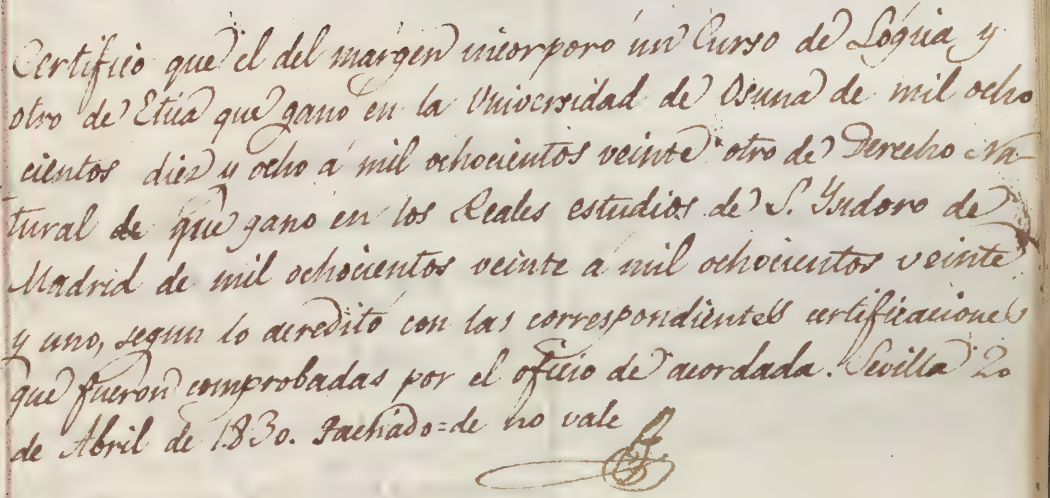 Certifico que el del margen incorporó un Curso de Lógica y
otro de Etica que ganó en la Universidad de Osuna de mil ocho
cientos diez y ocho á mil ochocientos veinte otro de Derecho Na-
tural de que ganó en los Reales estudios de S. Ysidoro de
Madrid de mil ochocientos veinte á mil ochocientos veinte
y uno, segun lo acreditó con las correspondientes certificaciones
que fueron comprobadas por el oficio de acordada. Sevilla 20
de Abril de 1830. Tachado=de no vale